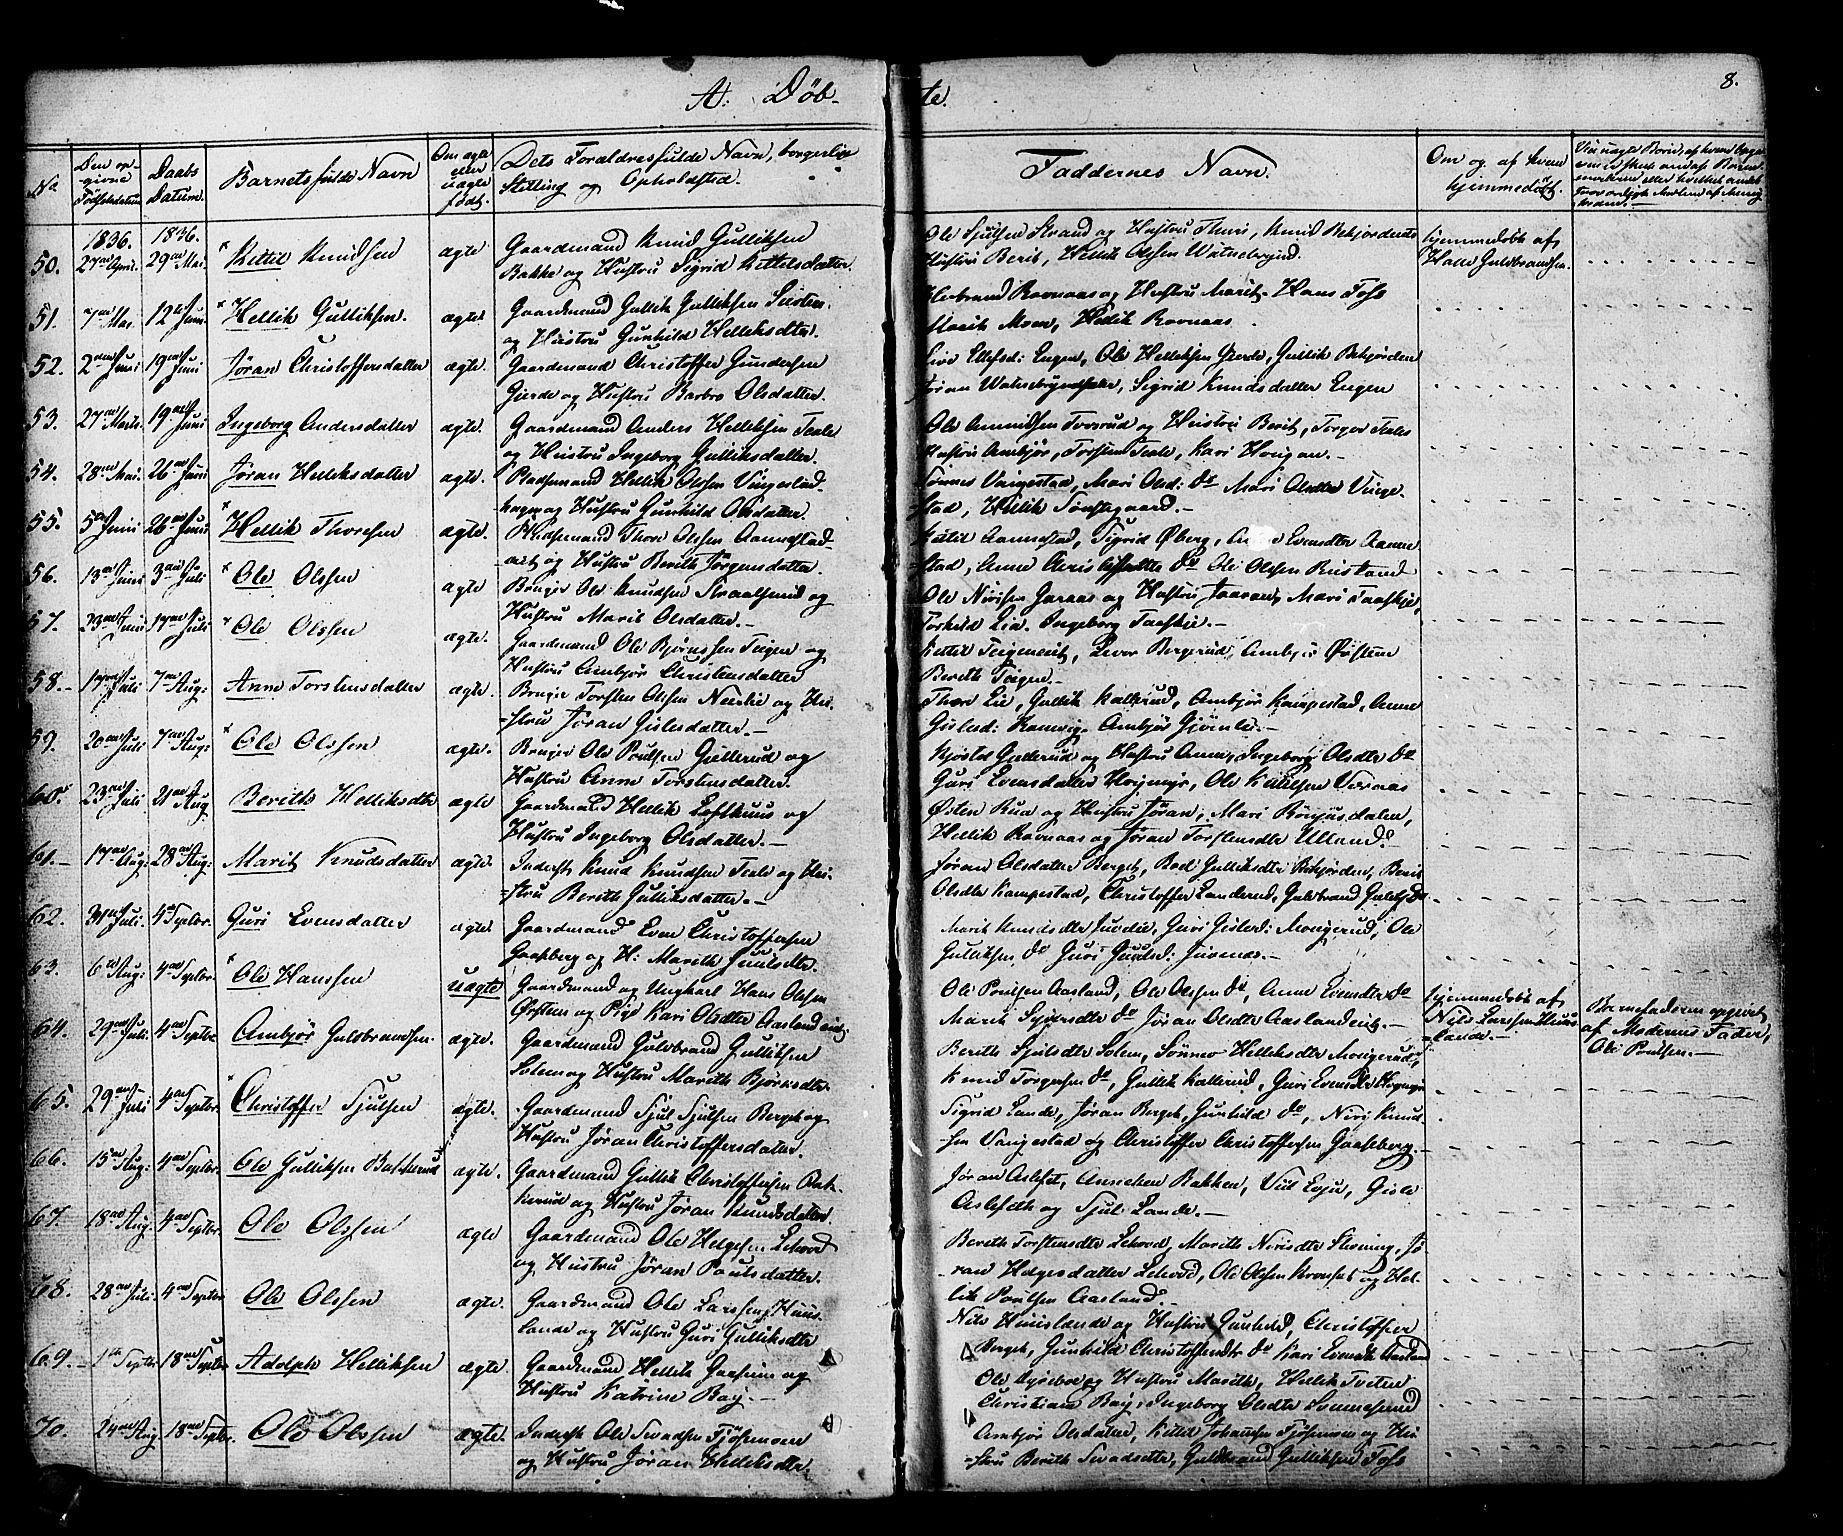 A: Døb- te.
8.
No
Den op-
givne
Fødselsdatum
Daabs
Datum.
Barnets fulde Navn
Om ægte
eller
uægte
født.
Dets Forældres fulde Navn, borgerlige
Stilling og Opholdsted.
Faddernes Navn.
Om og af hvem
hjemmedøbt.
1836. 1836.
50. 27de April. 29de Mai. Kettil Knudsen ægte Gaardmand Knud Gulliksen
Bakke og Hustru Sigrid Kettelsdatter.
Ole Sjulsen Strand og Hustru Thuri, Knud Bekjordens
Hustru Berit, Hellik Olssen Watnebrynd.
hjemmedøbt af
Halle Guldbrandsen.
51. 7de Mai. 12te Juni. Hellik Gulliksen. ægte. Gaardmand Gullik Gulliksen
og Hustru Gunhild Helleksdtr.
Herbrand Ravnaas og Hustru Marit. Hans Foss
Marit Moen, Hellik Ravnaas.
52. 2den Juni 19de Juni Jøran Christoffersdatter ægte. Gaardmand Christoffer Gundersen
Gjerde og Hustru Barbro Olsdatter.
Live Ellefsd: Engen, Ole Helliksen Gjerde, Gullik Bekjorden
Jøran Watnebryndsløke, Sigrid Knudsdatter Engen
53. 27de Marts. 19de Juni Ingeborg Andersdatter ægte. Gaardmand Anders Helliksen Teale
og Hustru Ingeborg Gulliksdatter.
Ole Amundsen Tvorrud og Hustru Berit, Torger Teales
Hustru Ambjør, Torsten Teale, Kari Hougan.
54. 28de Mai. 26de Juni Jøran Helleksdatter ægte. Pladsemand Hellik Olssen Vingestad-
hagen og Hustru Gunhild Olsdatter.
Tønnes Vangestad, Mari Olsd: do Mari Olsdtr Vinge-
stad, Hellik Tonstegaard.
55. 5te Juni 26de Juni Hellik Thoresen ægte. Pladsemand Thore Olssen Aannestad-
eiet og Hustru Berith Jørgensdatter.
Kittil Aannestad, Sigrid Øberg, Evensdtr Aanne
stad, Anne Christoffersdtr do Ole Olssen Rustand
56. 13de Juni 3die Juli Ole Olssen ægte Bruger Ole Knudsen Skraalsrud og
Hustru Marit Olsdatter.
Ole Nirisen Garaas og Hustru Aaraan, Mari Faaskje,
Torkild Lia. Ingeborg Faaskje.
57. 23de Juni 17de Juli Ole Olssen ægte. Gaardmand Ole Bjørnssen Teigen og
Hustru Ambjør Christensdatter
Kettil Teigeneiet, Lever Bergerud, Ambjør Østen
Berith Teigen.
58. 17de Juli 7de Aug: Anne Torstensdatter ægte. Bruger Torsten Olssen Neerlie og Hu-
stru Jøran Gislesdatter.
Thore Lie, Gullik Kallerud, Ambjør Kampestad, Anne
Gislesd: Komvig. Ambjør Gjømle.
59. 20de Juli 7de Aug: Ole Olssen ægte. Bruger Ole Poulsen Gullerud og
Hustru Anne Torstensdatter.
Njøstel Gullerud og Hustru Anne, Ingeborg Olsdtr do
Guri Evensdatter Hoymyr, Ole Kittilsen Vornas
60. 23de Juli 21de Aug Berith Helliksdtr ægte Gaardmand Hellik Lofthuus og
Hustru Ingeborg Olsdatter.
Østen Rua og Hustru Jøran, Mari Børjusdalen,
Hellik Ravnaas og Jøran Torstensdtr Ulland.
61. 17de Aug: 28de Aug: Marit Knudsdatter ægte. Inderst Knud Knudsen Teale og Hu-
stru Berith Gulliksdatter.
Jøran Olsdatter Berget, Boel Gulliksdtr Bekjorden, Berit
Olsdtr Kampestad, Christoffer Landerud, Guldbrand Gulliks. do.
62. 31te Juli. 4de Septbr. Guri Evensdatter ægte. Gaardmand Even Christoffersen
Gaasberg og H: Marith Juulsdtr.
Marit Knudsdtr Juvelie, Guri Gislesd: Mongerud, Ole
Gulliksen do Guri Gunlsd: Juvenes.
63. 6te Aug: 4de Septbr. Ole Hanssen uægte Gaardmand og Ungkarl Hans Olssen
Ørsten og Pige Kari Olsdtr Aasland eiet
Ole Poulsen Aasland, Ole Olssen do, Anne Evensdtr do
Marit Sjversdtr do Jøran Olsdtr Aaslandeiet.
hjemmedøbt af
Nils Larssen Huus-
lande.
Barnefaderen opgivet
af Moderens Fader,
Ole Poulsen.
64. 29de Juli. 4de Septbr Ambjør Guldbrandsen. ægte. Gaardmand Guldbrand Gulliksen
Solem og Hustru Marith Bjørnsdtr.
Berith Sjulsdtr Solem, Sønnev Helleksdtr Mongerud,
Knud Torgersen do, Gullik Kallerud, Guri Evensdtr Hoymyr
65. 29de Juli 4de Septbr. Christoffer Sjulsen ægte. Gaardmand Sjul Sjulsen Berget og
Hustru Jøran Christoffersdatter.
Sigrid Lande, Jøran Berget, Gunhild do, Niri Knud-
sen Vangestad og Christoffer Christoffersen Gaasberg.
66. 15de Aug: 4de Septbr. Ole Gulliksen Bakkerud ægte. Gaardmand Gullik Christoffersen Bak-
kerud og Hustru Jøran Knudsdatter.
Jøran Aslefet, Annechen Bakken, Viil Evju, Gisle
Aslefeth og Sjul Lande.
67. 18de Aug. 4de Septbr. Ole Olssen ægte Gaardmand Ole Helgesen Lehovd
og Hustru Jøran Poulsdatter.
Berith Torstensdtr Lehovd, Marith Nirisdtr Skening, Jø-
ran Helgesdatter Lehovd, Ole Olssen Kronset og Hel-
lik Poulsen Aasland.
68. 28de Juli. 4de Septbr Ole Olssen ægte. Gaardmand Ole Larssen Huus-
lande og Hustru Guri Gulliksdtr
Nils Huuslande og Hustru Gunhild, Christoffer
Berget, Gunhild Christoffersdtr do Kari Evensdtr Aasland
69. 1ste Septbr 18de Septbr Adolph Helliksen ægte. Gaardmand Hellik Gaasum og
Hustru Katrine Bay.
Ole Lyseboe og Hustru Marith, Hellik Tveten
Christian Bay. Ingeborg Olsdtr Svennesund
70. 24de Aug. 18de Septbr. Ole Olssen ægte. Inderst Ole Svendsen Tjøsemoen
og Hustru Jøran Helleksdtr
Ambjør Olsdatter, Kittil Johansen Tjøsemoen og Hu-
stru Berith Svendsdtr, Guldbrand Gulliksen Foss